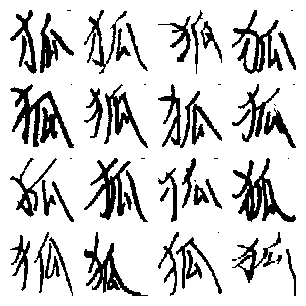 狐狐狐狐
狐狐狐狐
狐狐狐狐
狐狐狐狐